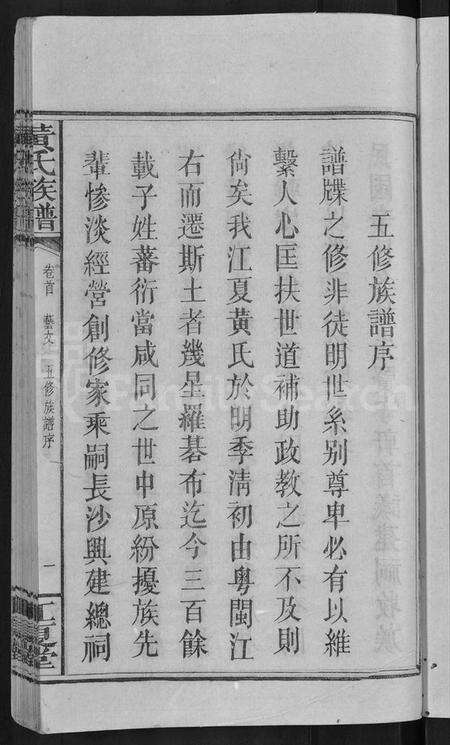 五修族譜序
譜牒之修非徒明世系别尊卑必有以維
繫人心匡扶世道補助政教之所不及則
尙矣我江夏黃氏於明季清初由粵閩江
右而遷斯土者幾星羅碁布迄今三百餘
載子姓蕃衍當咸同之世中原紛擾族先
輩慘淡經營創修家乘嗣長沙興建總祠
黃氏族譜
卷首 藝文 五修族譜序
一
江夏堂
FamilySearch